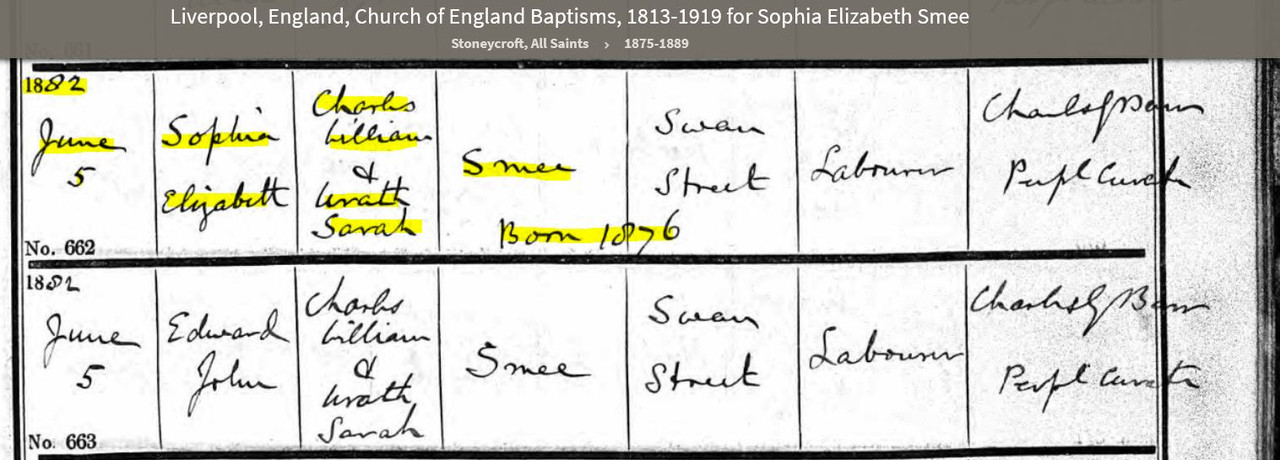 Liverpool, England, Church of England Baptisms, 1813-1919 for Sophia Elizabeth Smee
Stoneycroft, All Saints › 1875-1889
1882
June
5
No. 662
Sophia
Elizabeth
Charles
William
&
Sarah
Smee
Born 1876
Swan
Street
Labourer
Perpl Curate
1882
June
5
No. 663
Edward
John
Charles
William
&
Sarah
Smee
Swan
Street
Labourer
Perpl Curate